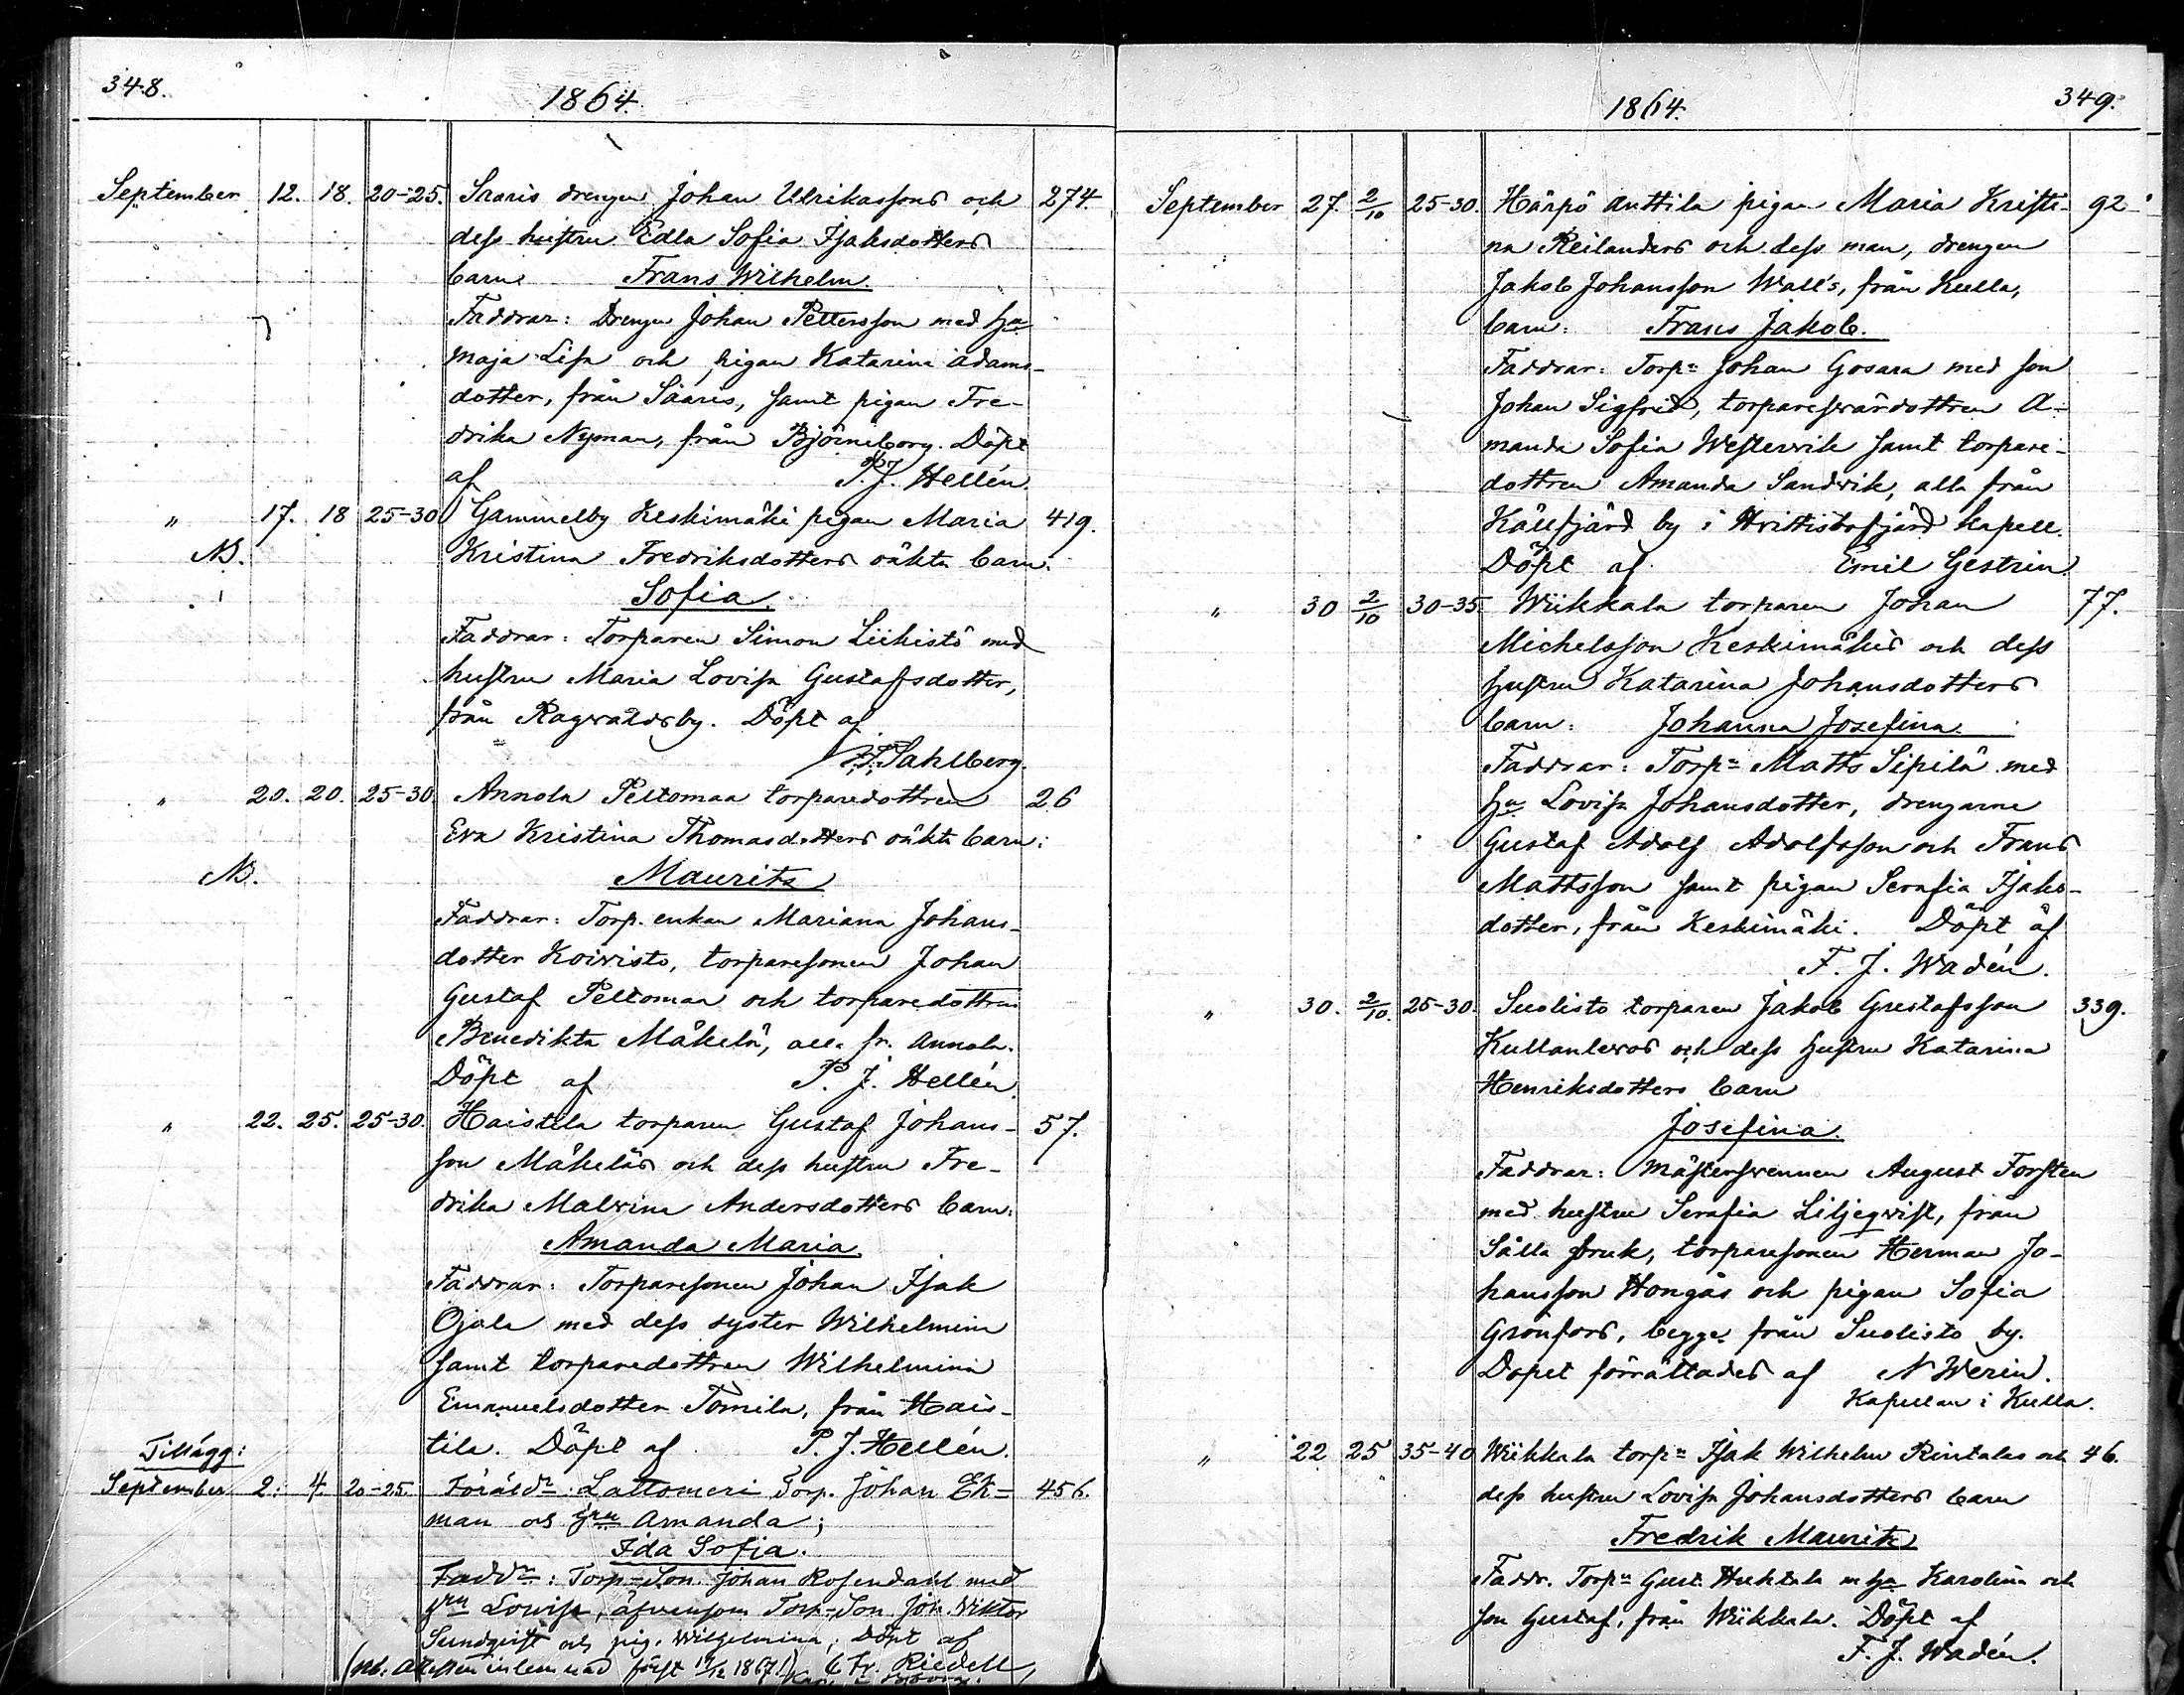 348.
1864.
September 12. 18. 20-25. Saaris drengen Johan Ulrikassons och 274.
dess hustru Edla Sofia Isaksdotters
barn Frans Wilhelm.
Faddrar: Drengen Johan Pettersson med hu
Maja Lisa och pigan Katarina Adams-
dotter, från Saaris, samt pigan Fre-
drika Nyman, från Björneborg. Döpt
af P. J. Hellén.
" 17. 18 25-30 Gammelby Keskimäki pigan Maria 419.
NB. Kristina Fredriksdotters oäkta barn:
Sofia.
Faddrar: Torparen Simon Liikistö med
hustru Maria Lovisa Gustafsdotter,
från Ragvaldsby. Döpt af
Sahlberg.
" 20. 20. 25-30. Annola Peltomaa torparedottren 26
Eva Kristina Thomasdotters oäkta barn:
NB. Maurits
Faddrar: Torp. enkan Mariana Johans-
dotter Koivisto, torparesonen Johan
Gustaf Peltomaa och torparedottren
Benedikta Mäkelä, alla fr. Annola.
Döpt af P. J. Hellén.
" 22. 25. 25-30. Haistila torparen Gustaf Johans- 57.
son Mäkeläs och dess hustru Fre-
drika Malvina Andersdotters barn:
Amanda Maria.
Faddrar: Torparesonen Johan Isak
Ojala med dess syster Wilhelmina
samt torparedottren Wilhelmina
Emanuelsdotter Tomila, från Hais-
tila. Döpt af P. J. Hellén.
Tillägg:
September 2. 4. 20-25. Föräldr: Lattomeri Torp. Johan Ek- 456.
man och hru Amanda;
Ida Sofia.
Faddr: Torp-Son Johan Rosendahl med
hru Lovisa, äfvensom Torp-Son Joh. Viktor
Sundqvist och pig. Wilhelmina; Döpt af
(NB. Attesten inlemnad först 19/12 1867.) Fr. Riedell,
1864.
349.
September 27. 2/10 25-30. Härpö Anttila pigan Maria Kristi- 92
na Reilanders och dess man, drengen
Jakob Johansson Wall's, från Kulla,
barn: Frans Jakob.
Faddrar: Torpn Johan Gosara med son
Johan Sigfrid, torparesvärdottren A-
manda Sofia Westervik samt torpare-
dottren Amanda Sandvik, alla från
Källfjärd by i Hvittisbofjärd kapell.
Döpt af Emil Gestrin.
" 30 2/10 30-35. Wiikkala torparen Johan 77.
Michelsson Keskimäkis och dess
hustru Katarina Johansdotters
barn: Johanna Josefina.
Faddrar: Torpn Matts Sipilä med
hu Lovisa Johansdotter, drengarne
Gustaf Adolf Adolfsson och Frans
Mattsson samt pigan Serafia Isaks-
dotter, från Keskimäki. Döpt af
F. J. Wadén.
" 30. 2/10. 25-30. Suolisto torparen Jakob Gustafsson 339.
Kullanlevos och dess hustru Katarina
Henriksdotters barn
Josefina.
Faddrar: Mästersvennen August Forsten
med hustru Serafia Liljeqvist, från
Sålla bruk, torparesonen Herman Jo-
hansson Hongas och pigan Sofia
Grönfors, begge från Suolisto by.
Dopet förrättades af N Werin.
Kapellan i Kulla.
" 22 25 35-40 Wiikkala torpn Isak Wilhelm Rintalas och 46.
dess hustru Lovisa Johansdotters barn
Fredrik Maurits
Faddr. Torpn Gust. Huktala m hu Karolina och
son Gustaf, från Wiikkala. Döpt af
F. J. Wadén.